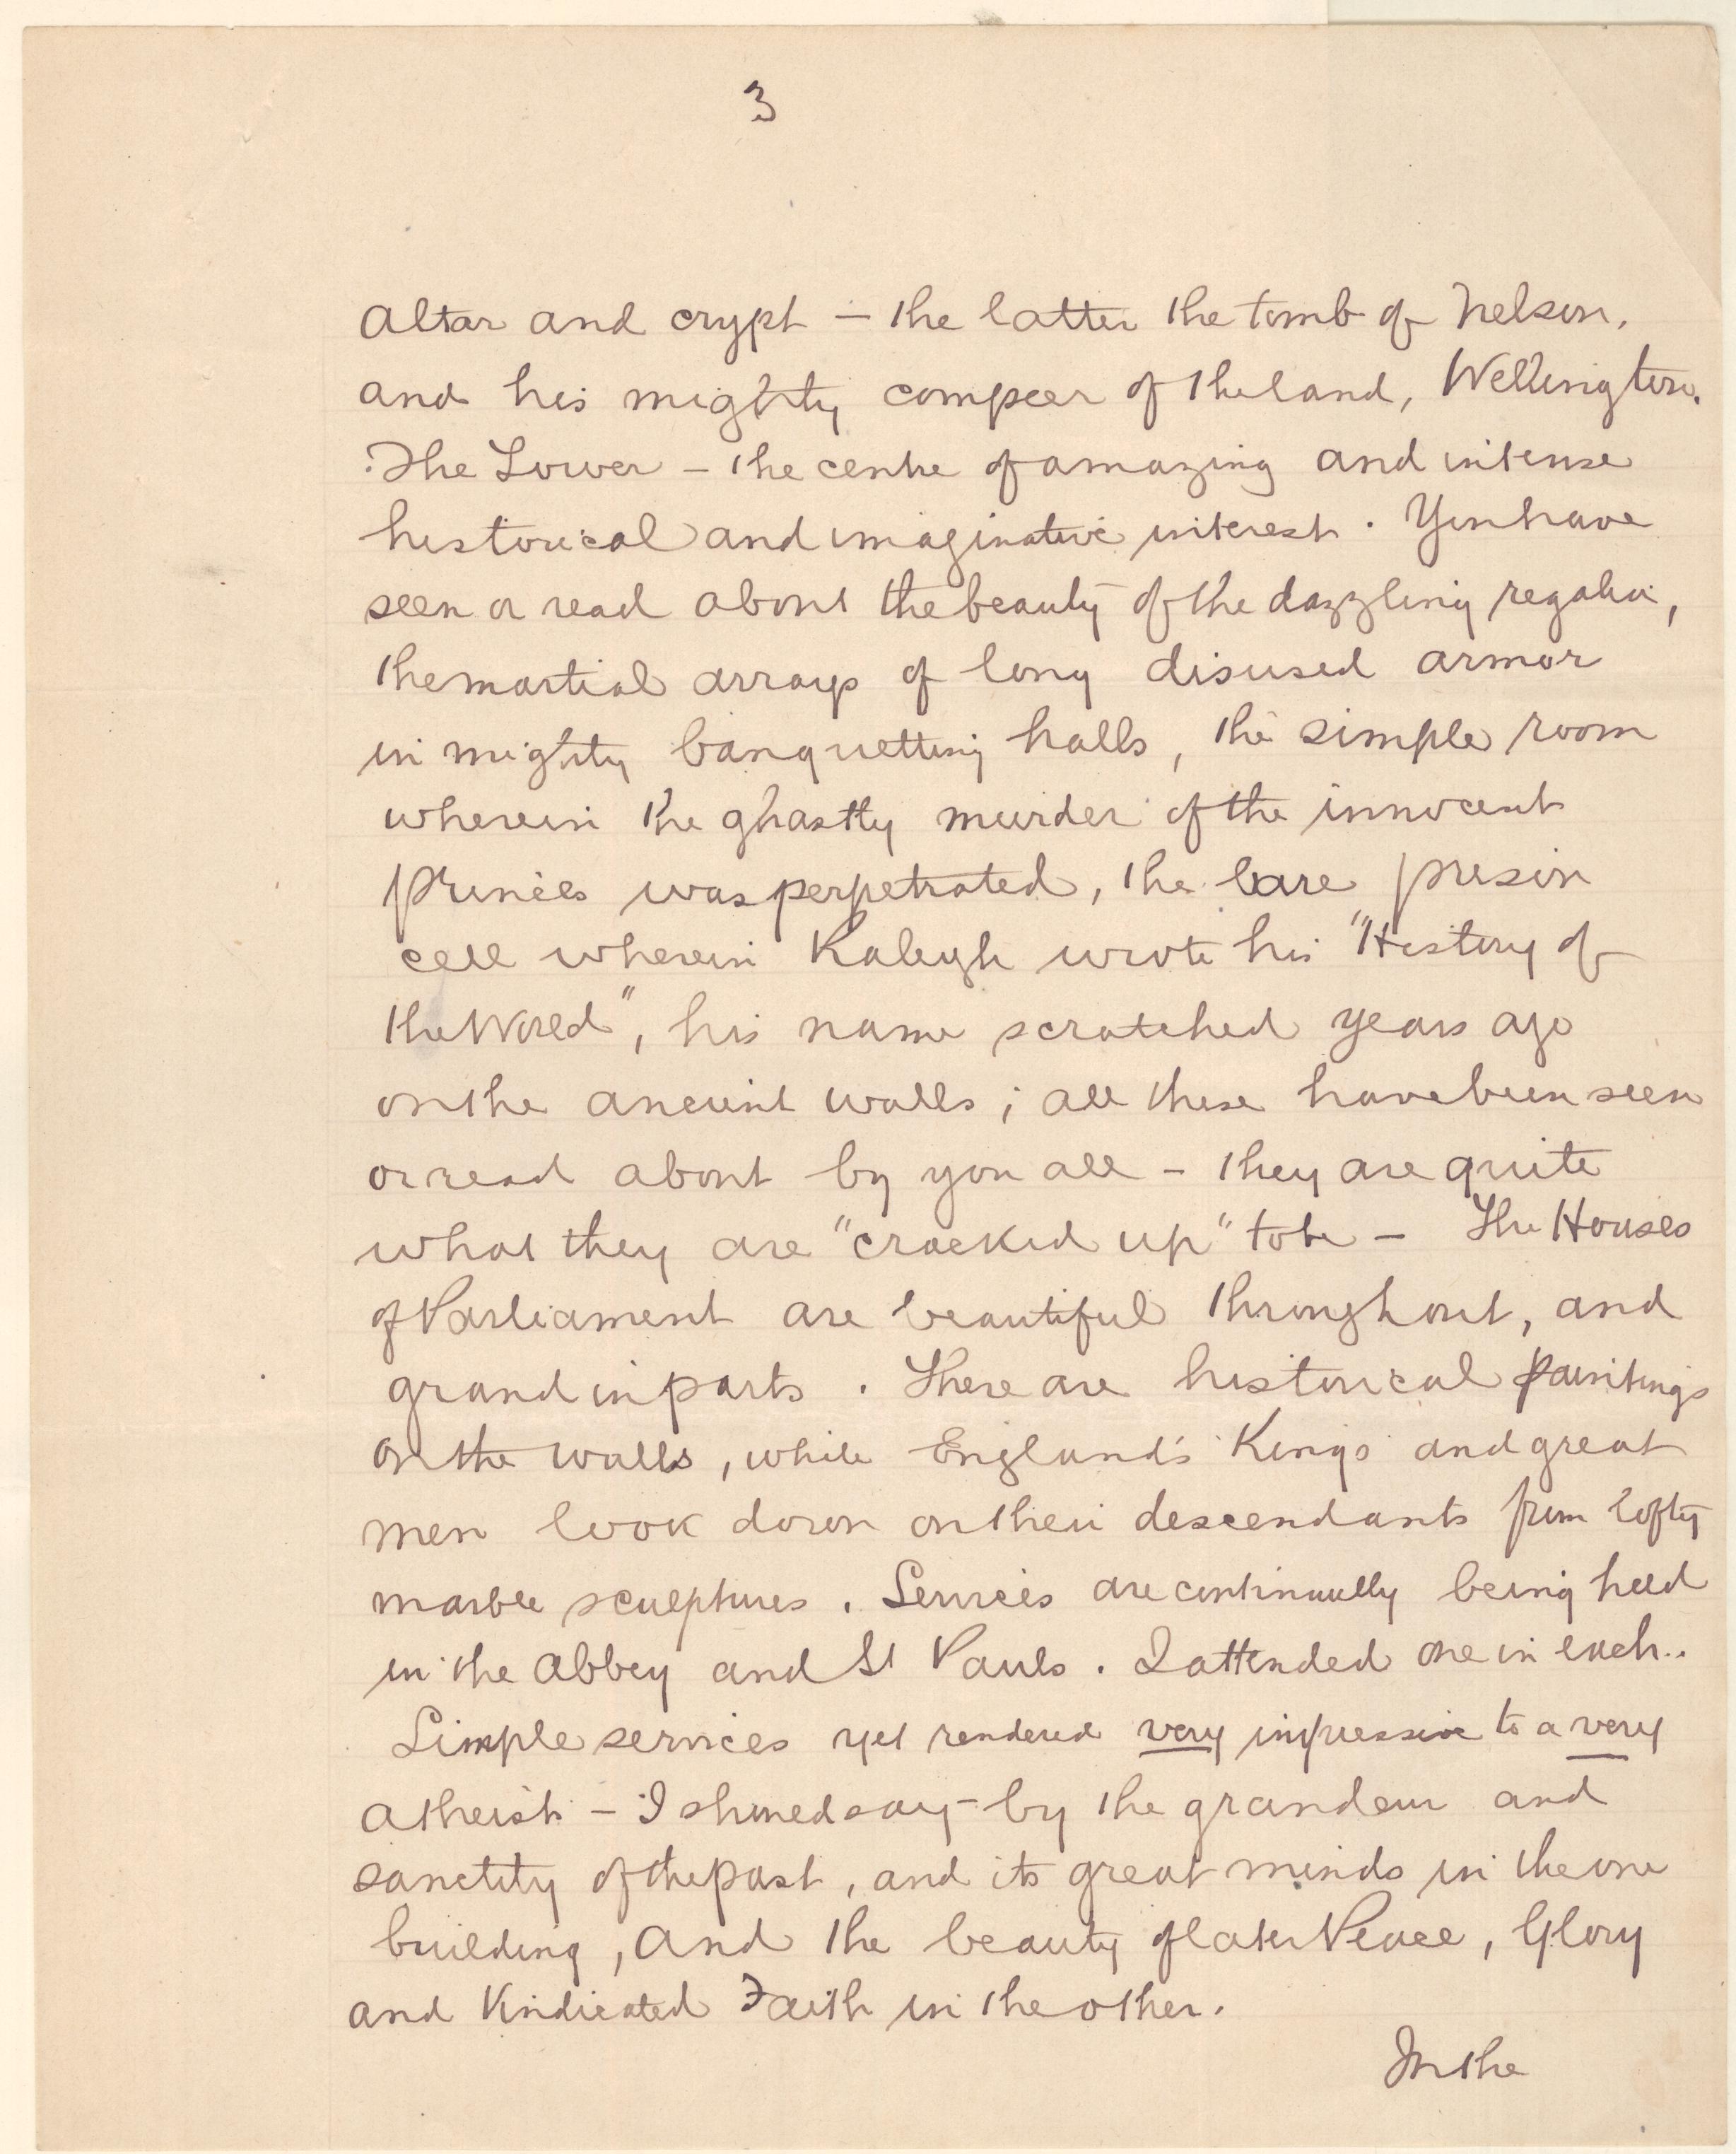 3
Altar and crypt – the latter the tomb of Nelson,
and his mighty compeer of the land, Wellington.
The Tower – the centre of amazing and intense
historical and imaginative interest. You have
seen or read about the beauty of the dazzling regalia,
the martial arrays of long disused armor
in mighty banquetting halls, the simple room
wherein the ghastly murder of the innocent
princes was perpetrated, the bare prison
cell wherein Raleigh wrote his "History of
the World", his name scratched years ago
on the ancient walls; all these have been seen
or read about by you all – they are quite
what they are "cracked up" to be – The Houses
of Parliament are beautiful throughout, and
grand in parts. There are historical paintings
on the walls, while England's Kings and great
men look down on their descendants from lofty
marble sculptures. Services are continually being held
in the Abbey and St Pauls. I attended one in each..
Simple services yet rendered very impressive to a very
atheist – I should say – by the grandeur and
sanctity of the past, and its great minds in the one
building, and the beauty of later Peace, Glory
and Vindicated Faith in the other.
In the